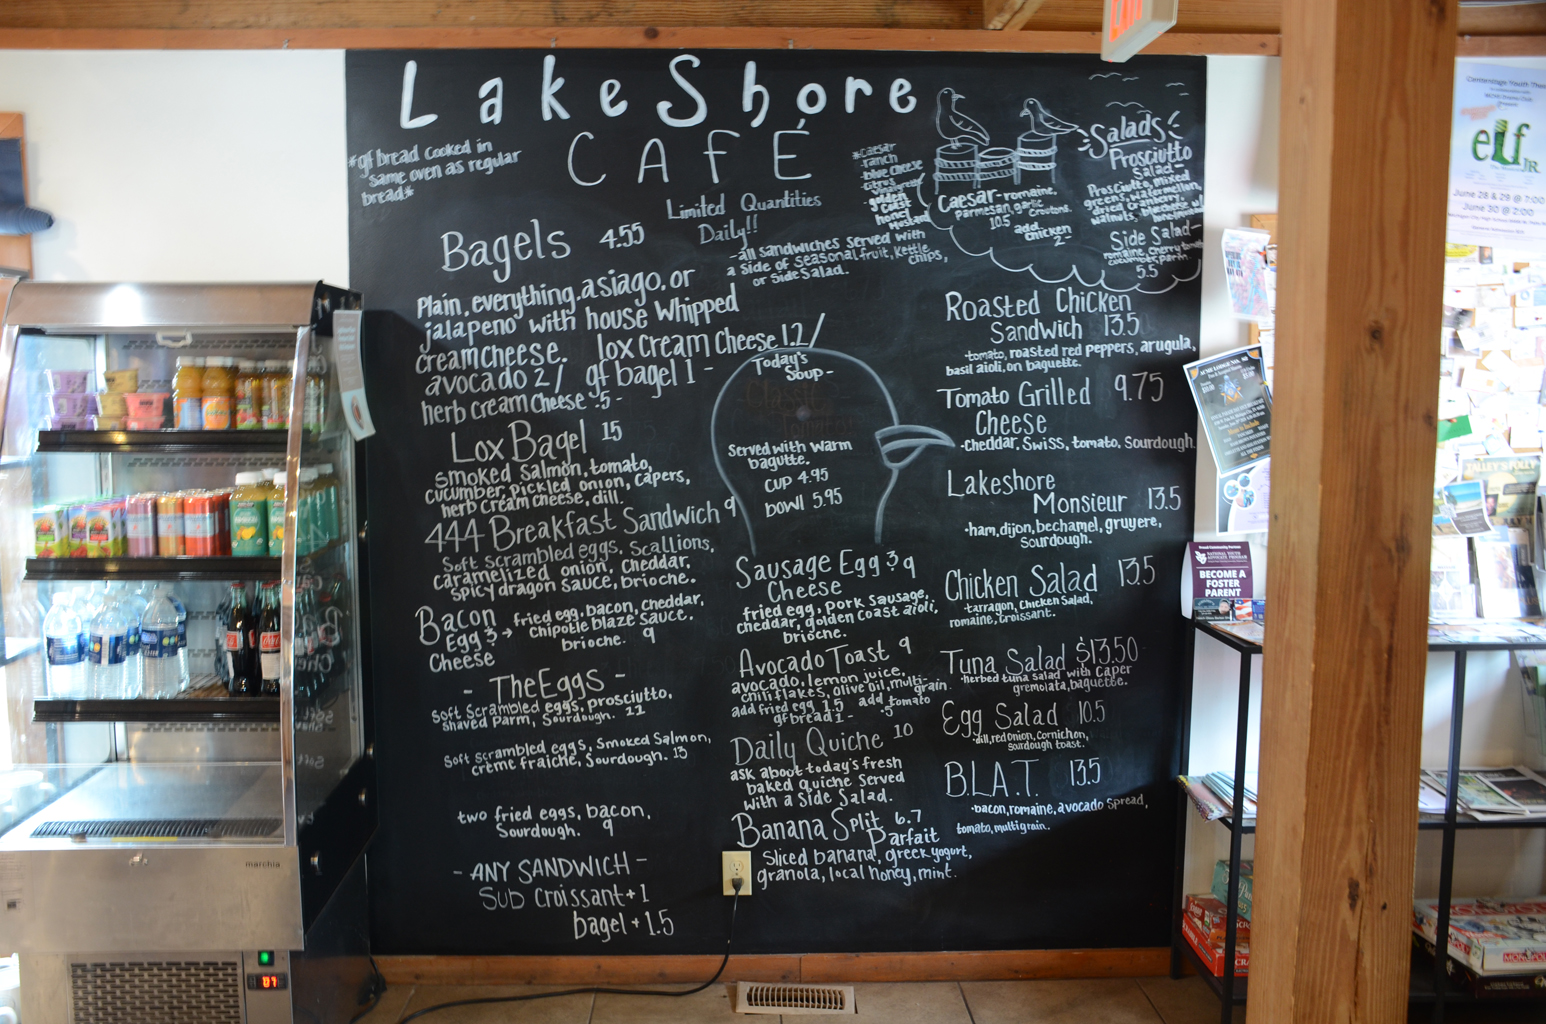 LakeShore
CAFÉ
*gf bread cooked in
same oven as regular
bread*
Limited Quantities
Daily!!
-all sandwiches served with
a side of seasonal fruit, kettle chips,
or side salad.
Bagels 4.55
Plain, everything, asiago, or
jalapeno with house whipped
creamcheese. lox cream cheese 1.2/
avocado 2/ gf bagel 1-
herb cream cheese .5-
Lox Bagel 15
smoked salmon, tomato,
cucumber, pickled onion, capers,
herb cream cheese, dill
444 Breakfast Sandwich 9
Soft scrambled eggs, scallions,
caramelized onion, cheddar,
spicy dragon sauce, brioche.
Bacon
Egg &
Cheese
fried egg, bacon, cheddar,
chipotle blaze sauce.
brioche. 9
- The EGGS -
Soft scrambled eggs, prosciutto,
shaved parm, sourdough. 11
Soft scrambled eggs, smoked salmon,
crème fraiche, sourdough. 13
two fried eggs, bacon,
Sourdough. 9
- ANY SANDWICH -
SUB croissant + 1
bagel + 1.5
Today's
Soup-
served with warm
bagutte.
cup 4.95
bowl 5.95
Sausage Egg & 9
Cheese
fried egg, pork sausage,
cheddar, golden coast aioli,
brioche.
Avocado Toast 9
avocado, lemon juice,
chili flakes, olive oil, multi-
grain.
add fried egg 1.5 add tomato
gf bread 1- .5
Daily Quiche 10
ask about today's fresh
baked quiche served
with a side salad.
Banana Split 6.7
Parfait
Sliced banana, greek yogurt,
granola, local honey, mint.
*caesar
-ranch
-blue cheese
honey
mustard
Caesar- romaine,
Parmesan, garlic
croutons
10.5 add
chicken
2-
Salads
Prosciutto
Salad
Prosciutto, mixed
greens, watermelon,
dried cranberry,
walnuts,
Side Salad-
romaine, cherry tomato
cucumber, parm
5.5
Roasted Chicken
Sandwich 13.5
-tomato, roasted red peppers, arugula,
basil aioli, on baguette.
Tomato Grilled 9.75
Cheese
-cheddar, swiss, tomato, sourdough.
Lakeshore
Monsieur 13.5
-ham, dijon, bechamel, gruyere,
sourdough.
Chicken Salad 13.5
-tarragon, chicken salad,
romaine, croissant.
Tuna Salad $13.50
-herbed tuna salad with caper
gremolata, baguette.
Egg Salad 10.5
-dill, red onion, cornichon,
sourdough toast.
B.L.A.T. 13.5
-bacon, romaine, avocado spread,
tomato, multigrain.
elf
JR.
June 28 & 29 @ 7:00
June 30 @ 2:00
BECOME A
FOSTER
PARENT
marchia
07
MONOPOLY